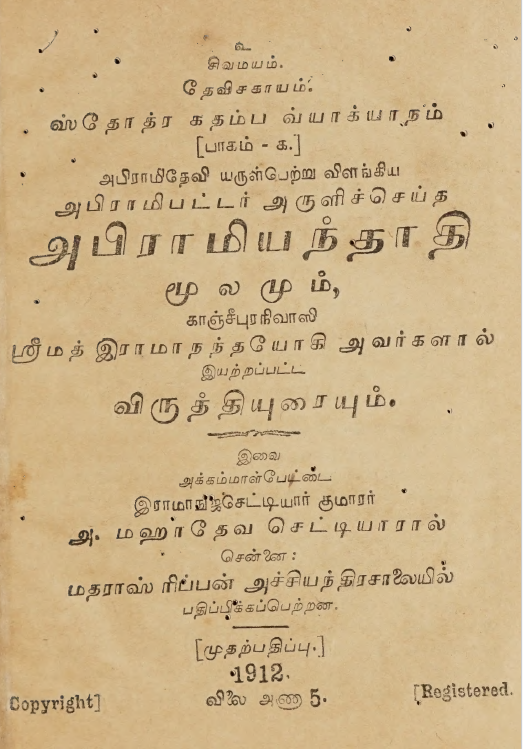 உ
சிவமயம்.
தேவிசகாயம்.
ஸ்தோத்ர கதம்ப வ்யாக்யாநம்
[பாகம் - க.]
அபிராமிதேவி யருள்பெற்று விளங்கிய
அபிராமிபட்டர் அருளிச்செய்த
அபிராமியந்தாதி
மூலமும்,
காஞ்சீபுரநிவாஸி
ஸ்ரீமத் இராமாநந்தயோகி அவர்களால்
இயற்றப்பட்ட
விருத்தியுரையும்.
இவை
அக்கம்மாள்பேட்டை
இராமாநுஜசெட்டியார் குமாரர்
அ. மஹாதேவ செட்டியாரால்
சென்னை:
மதராஸ் ரிப்பன் அச்சியந்திரசாலையில்
பதிப்பிக்கப்பெற்றன.
[முதற்பதிப்பு.]
1912.
Copyright] விலை அணா 5. [Registered.